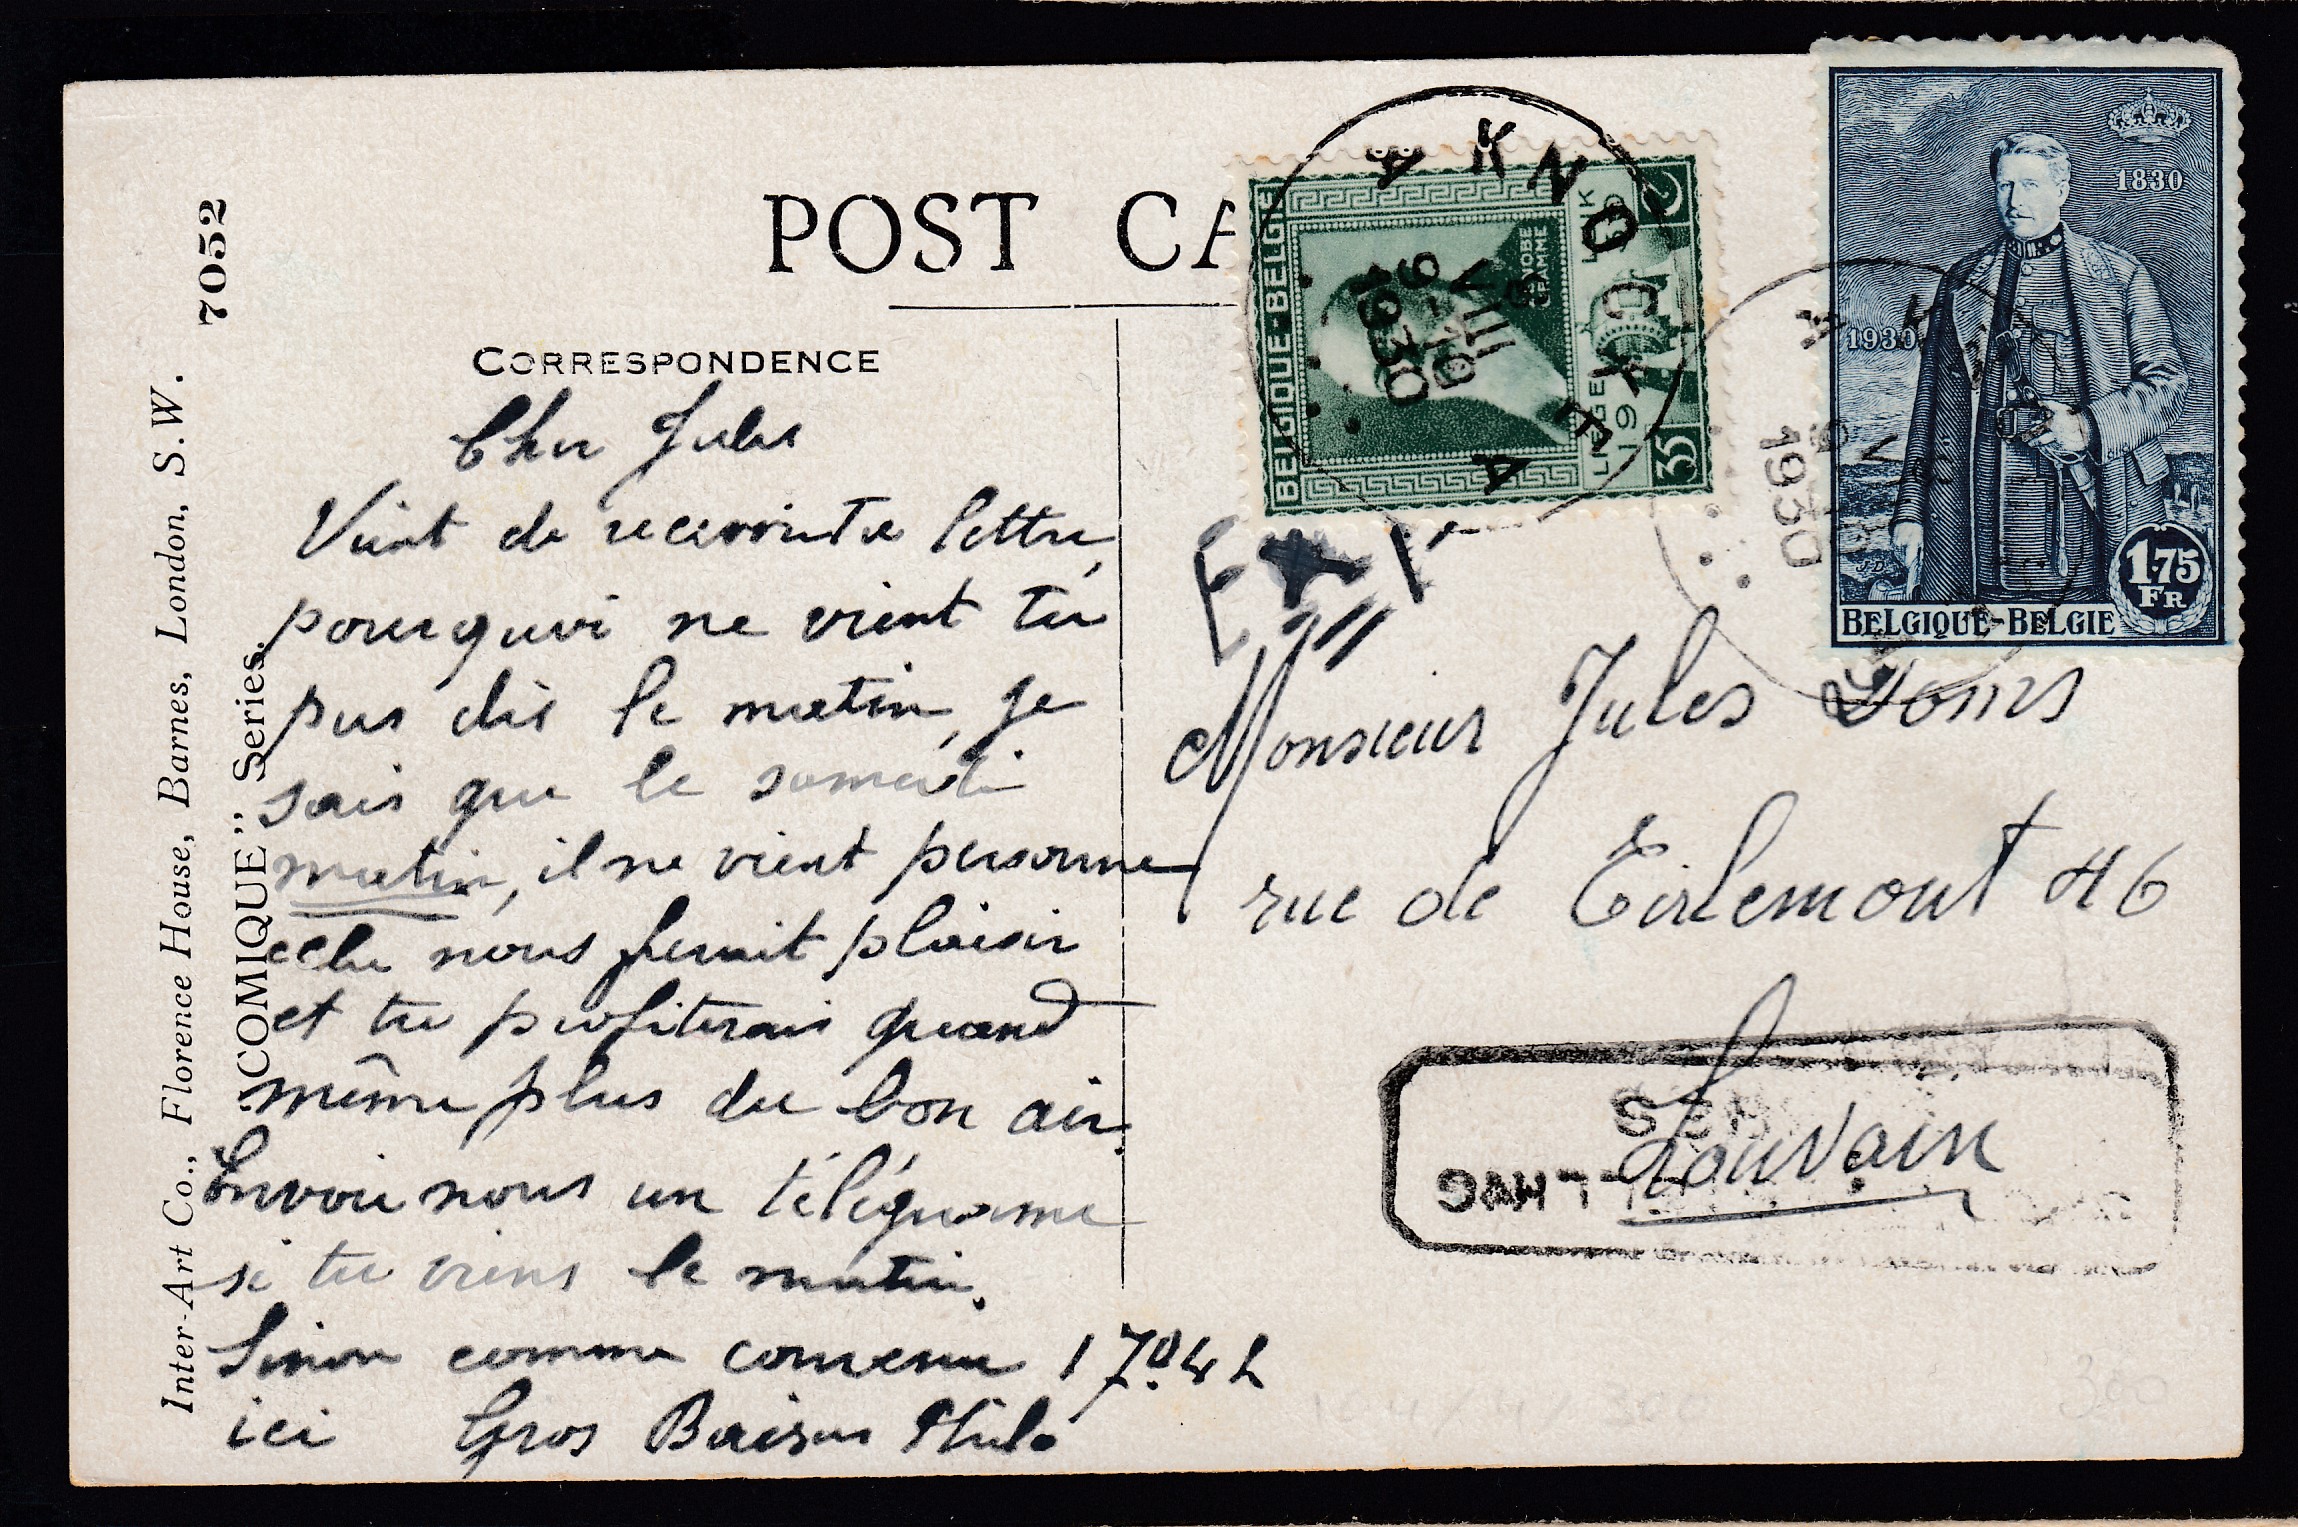 POST CA
CORRESPONDENCE
Cher Jules
Vient de recevoir ta lettre,
pourquoi ne vient tu
pas dès le matin, je
sais que le samedi
matin, il ne vient personne
cela nous ferait plaisir
et tu profiterais quand
même plus du bon air.
Envoie nous un télégrame
si tu viens le matin.
Sinon comme convenu 17
ici Gros Baisers Philo
7052
Inter-Art Co., Florence House, Barnes, London, S.W.
"COMIQUE" Series.
BELGIQUE-BELGIË
ZENOBE
GRAMME
35
KNOCKE
A
A
9
VIII
1930
1830
1930
1.75
FR
BELGIQUE-BELGIE
A K
1930
Monsieur Jules
rue de Tirlemont 46
Louvain
300